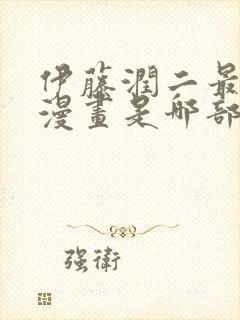 伊藤潤二最
漫畫是哪部
強衛